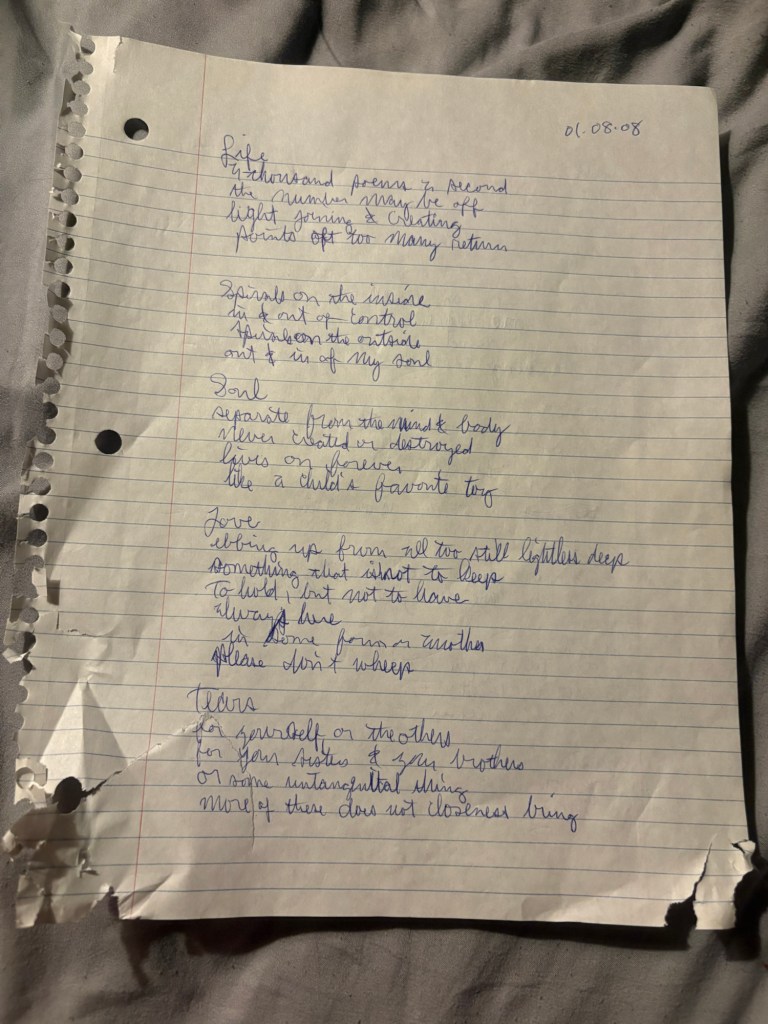 01.08.08
Life
a thousand poems a second
the number may be off
light joining & creating
points oft too many return
Spirals on the inside
in & out of control
Spirals on the outside
out & in of my soul
Soul
separate from the mind & body
never created or destroyed
lives on forever
like a child's favorite toy
Love
ebbing up from all too still lightless deep
something that is not to keep
To hold, but not to have
always here
in some form or another
please don't wheep
Tears
for yourself or the others
for your sisters & your brothers
or some untangultal thing
more of these does not closeness bring